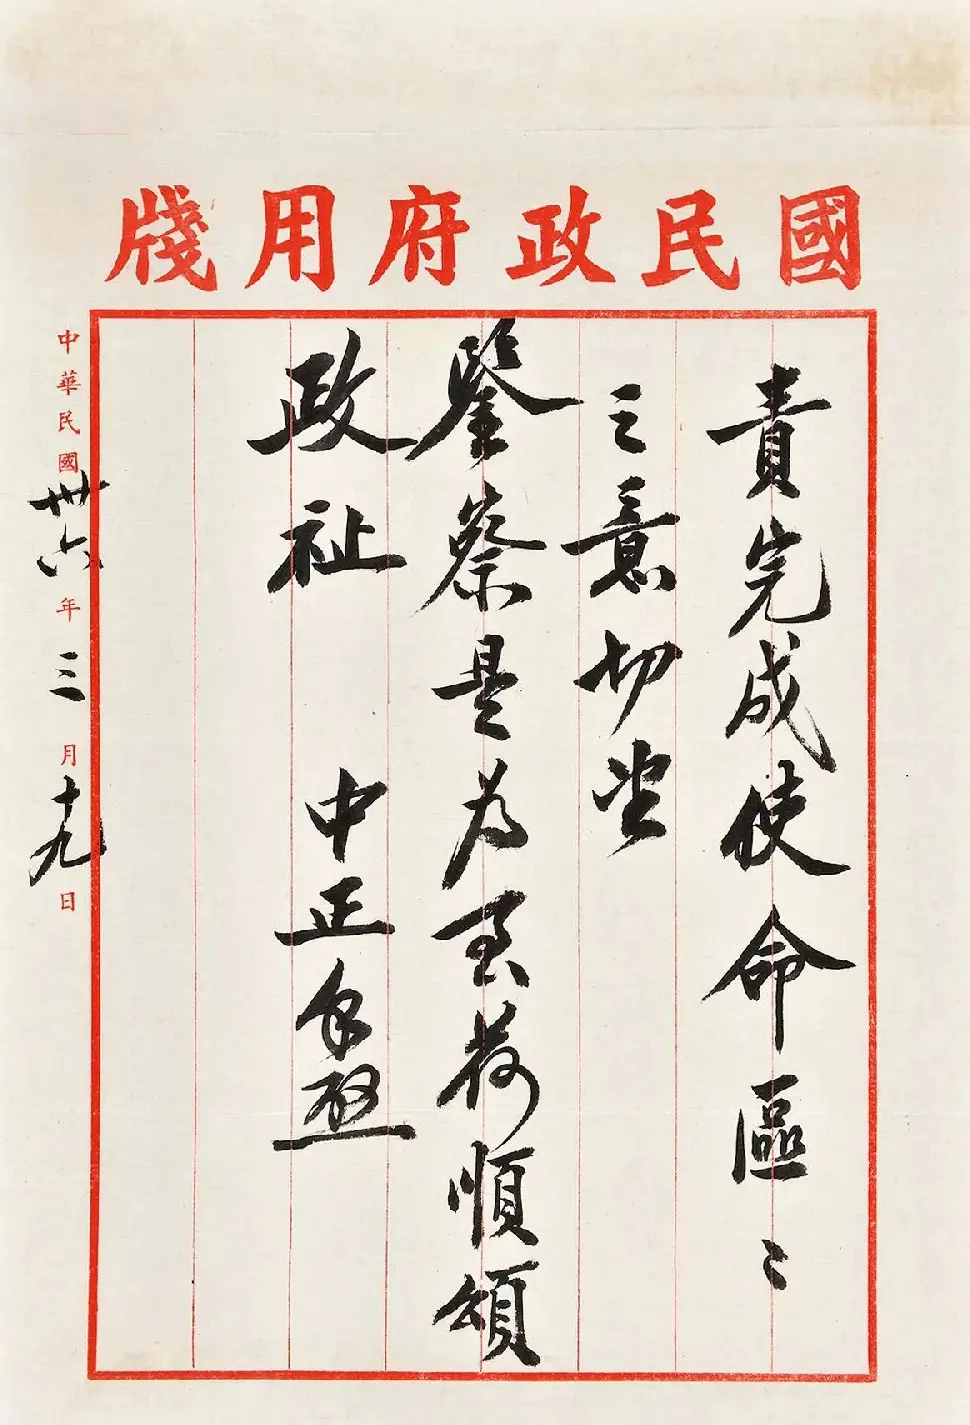 國民政府用牋
責完成使命區々
之意切望
鑒察是為至荷順頌
政祉 中正手啟
中華民國卅六年三月十九日